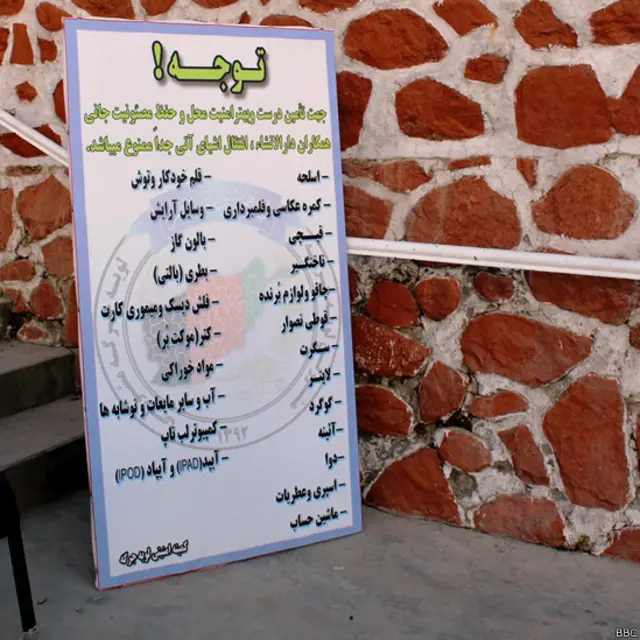 توجه !
جهت تأمین درست وبهتر امنیت محل و حفظ مصئونیت جانی
همکاران دارالانشاء ، انتقال اشیای آتی جداً ممنوع میباشد.
- اسلحه
- کمره عکاسی و فلمبرداری
- قیچی
- ناخنگیر
- چاقو ولوازم بُرنده
- قوطی نصوار
- سگرت
- لایتر
- گوگرد
- آئینه
- دوا
- اسپری وعطریات
- ماشین حساب
- قلم خودکار ونوش
- وسایل آرایش
- بالون گاز
- بطری (بالتی)
- فلش دیسک و میموری کارت
- کتر(موکت بر)
- مواد خوراکی
- آب و سایر مایعات و نوشابه ها
- کمپیوتر لپ تاپ
- آیپد(IPAD) و آیپاد (IPOD)
۱۳۹۲
کمیته امنیتی لویه جرگه
BBC